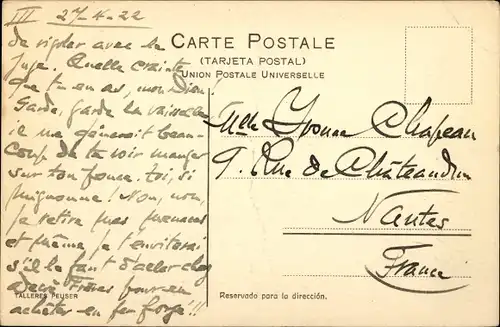 III 27-4-22
de rigoler avec le
juge. Quelle crainte
que tu en as, mon Dieu!
Garde, garde la vaisselle
il me gêneroit beau-
coup de te voir manger
sur ton pouce. toi, si
mignonne! Non, non,
je retire mes menaces
et même je t'enviterai
s'il le faut d'aller chez
Deux Frères pour en
acheter en fer forgé!!!
TALLERES PEUSER
CARTE POSTALE
(TARJETA POSTAL)
UNION POSTALE UNIVERSELLE
Mlle Yvonne Chapeau
9. Rue de Châteaudun
Nantes
France
Reservado para la dirección.